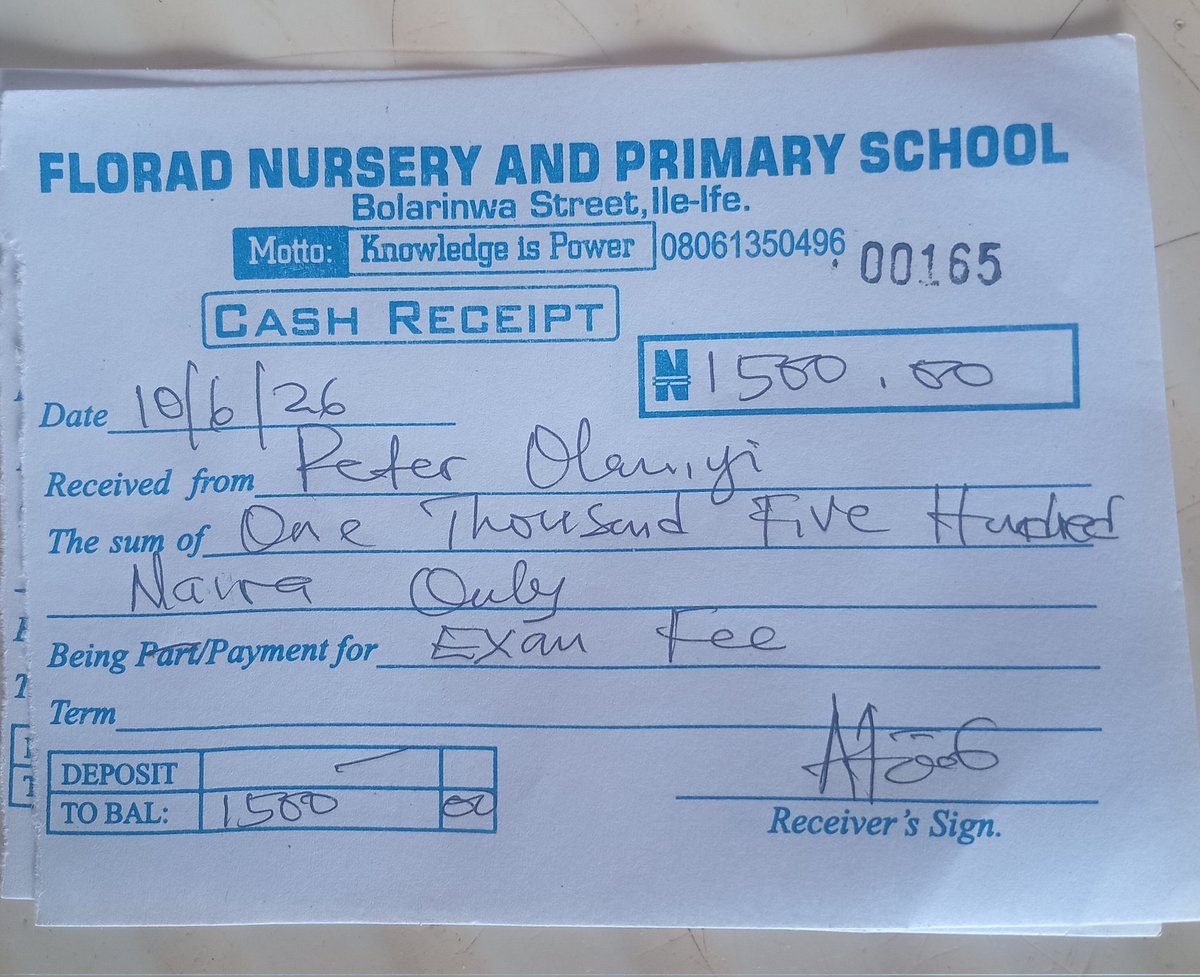 FLORAD NURSERY AND PRIMARY SCHOOL
Bolarinwa Street, Ile-Ife.
Motto: Knowledge is Power 08061350496 00165
CASH RECEIPT
₦ 1500.00
Date 10/6/26
Received from Peter Olaniyi
The sum of One Thousand Five Hundred
Naira Only
Being Part/Payment for Exam Fee
Term
DEPOSIT
TO BAL: 1500 00
Receiver's Sign.